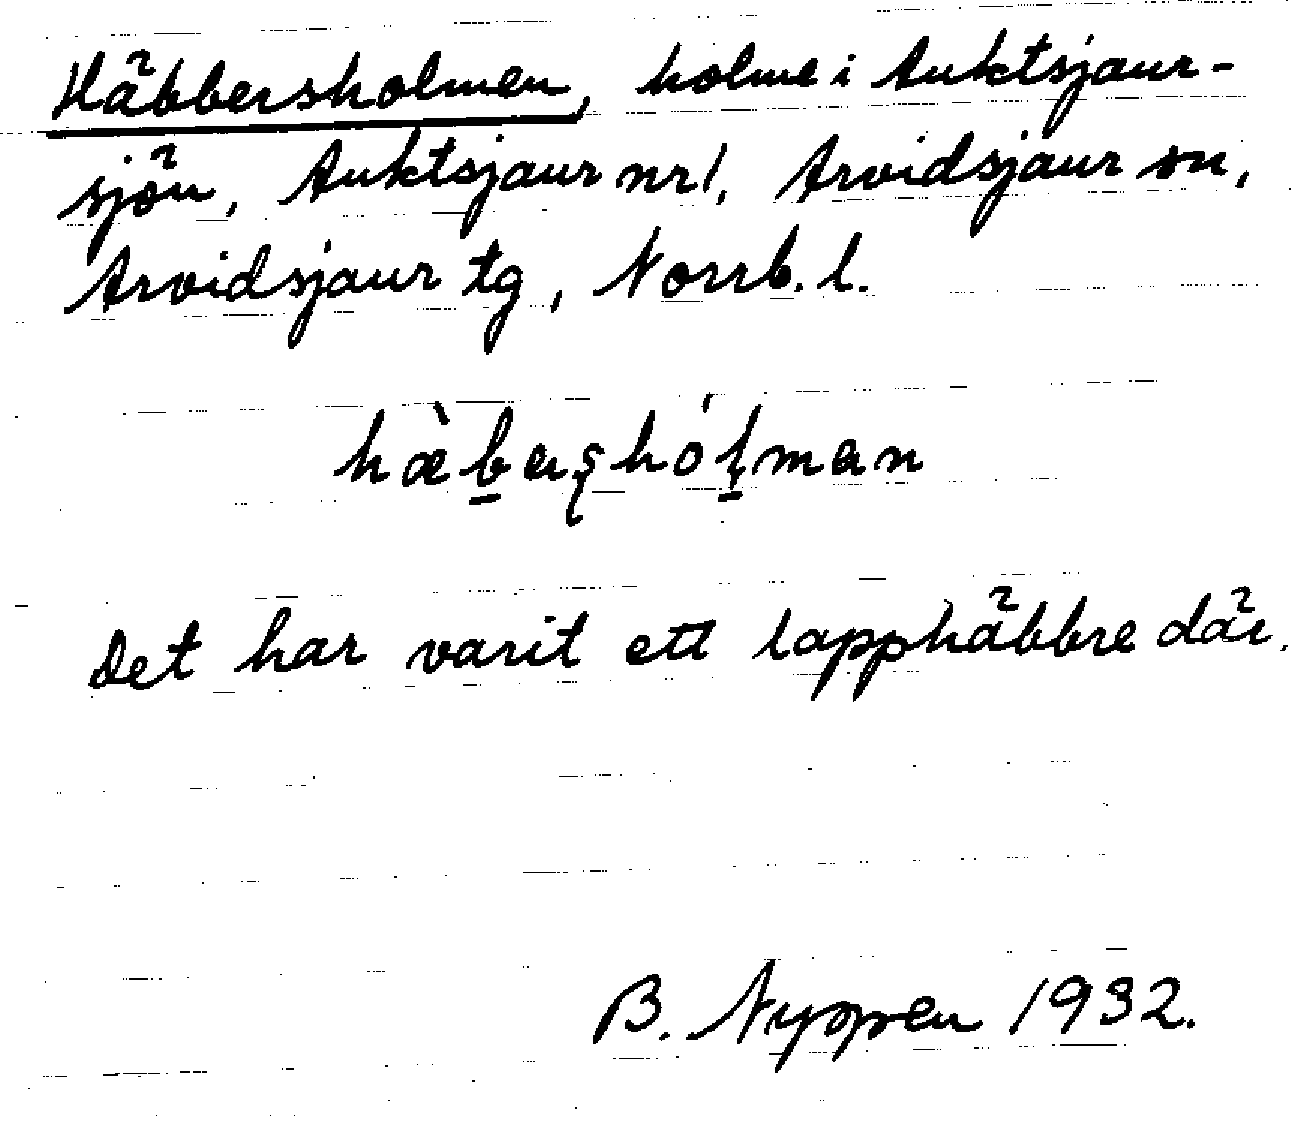 Häbbersholmen, holme i Auktsjaur-
sjön, Auktsjaur nr 1, Arvidsjaur sn,
Arvidsjaur tg, Norrb. l.
hæ̀b̲erʂhól̲man
Det har varit ett lapphäbbre där.
B. Nyppen 1932.